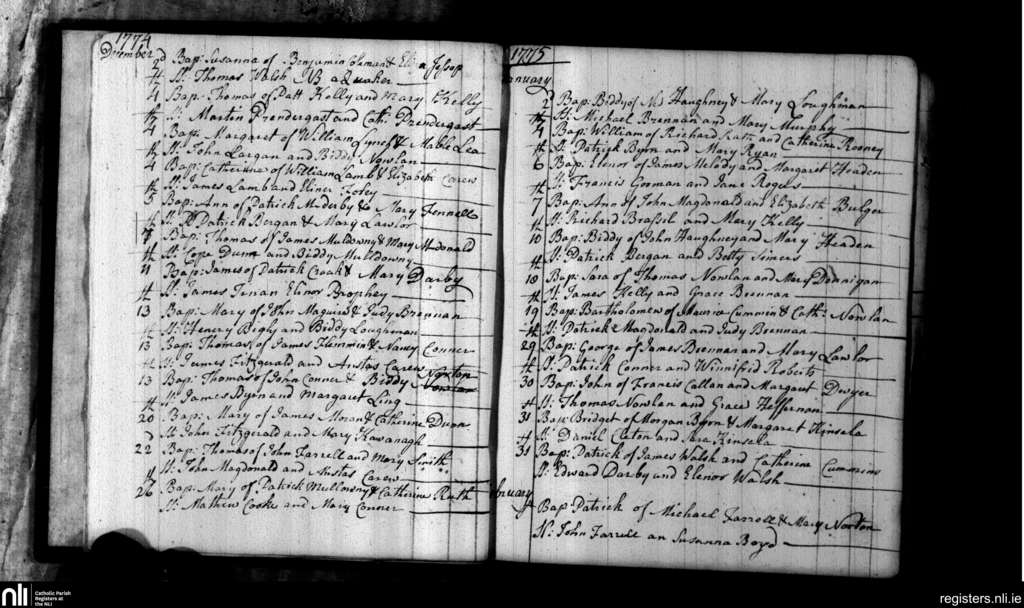 1774
December
2d Bap: Susanna of Benjamin Coleman & Eliz Jessop
St: Thomas Walsh NB a Quaker
4 Bap: Thomas of Patt Kelly and Mary Kelly
St: Martin Prendergast and Cath: Prendergast
4 Bap: Margaret of William Lynch & Mable Lea
St: John Largan and Biddy Nowlan
4 Bap: Catherine of William Lamb & Elizabeth Carew
St: James Lamb and Elinor Foley
5 Bap: Ann of Patrick Mcderby & Mary Fennell
St: Patrick Bergan & Mary Lawlor
Bap: Thomas of James Muldowny & Mary McDonald
St: Cope Dunn and Biddy Mulldowny
11 Bap: James of Patrick Croak & Mary Darby
St: James Tinan Elinor Brophey
13 Bap: Mary of John Maguire & Judy Brennan
St: Henry Bigly and Biddy Loughman
13 Bap: Thomas of James Flemmin & Nancy Conner
St: James Fitzgerald and Anstas Carew
13 Bap: Thomas of John Conner & Biddy Norton
St: James Byon and Margaret Ling
20 Bap: Mary of James & Catherine Dunn
St John Fitzgerald and Mary Kavanagh
22 Bap: Thomas of John Farrell and Mary Smith
St: John Magdonald and Anstas Carew
26 Bap: Mary of Patrick Mullowny & Catherine Ruth
St: Mathew Cooke and Mary Conner
1775
January
2d Bap: Biddy of Ms Haughney & Mary Loughman
St: Michael Brennan and Mary Murphy
4 Bap: William of Richard and Catherine Rooney
St: Patrick Byrn and Mary Ryan
6 Bap: Elenor of James Melody and Margaret Headen
St: Francis Gorman and Jane Rogers
7 Bap: Ann of John Magdonald and Elizabeth Bulger
St: Richard Brassil and Mary Kelly
10 Bap: Biddy of John Haughney and Mary Headen
St: Patrick Bergan and Betty Simers
10 Bap: Sara of Thomas Nowlan and Mary Dannigan
St: James Kelly and Grace Brennan
19 Bap: Bartholomew of Maurice Cummin & Cath: Nowlan
St: Patrick Macdonald and Judy Brennan
29 Bap: George of James Brennan and Mary Lawlor
St: Patrick Conner and Winnifrid Roberts
30 Bap: John of Francis Callan and Margaret Dwyer
St: Thomas Nowlan and Grace Heffernan
31 Bap: Bridget of Morgan Byrn & Margaret Kinsela
St: Daniel Claton and Sara Kinsela
31 Bap: Patrick of James Walsh and Catherine Cummins
St: Edward Darby and Elenor Walsh
Bap Patrick of Michael Farrell & Mary Norton
St: John Farrell an Susanna Boyd
nli Catholic Parish
Registers at
the NLI
registers.nli.ie